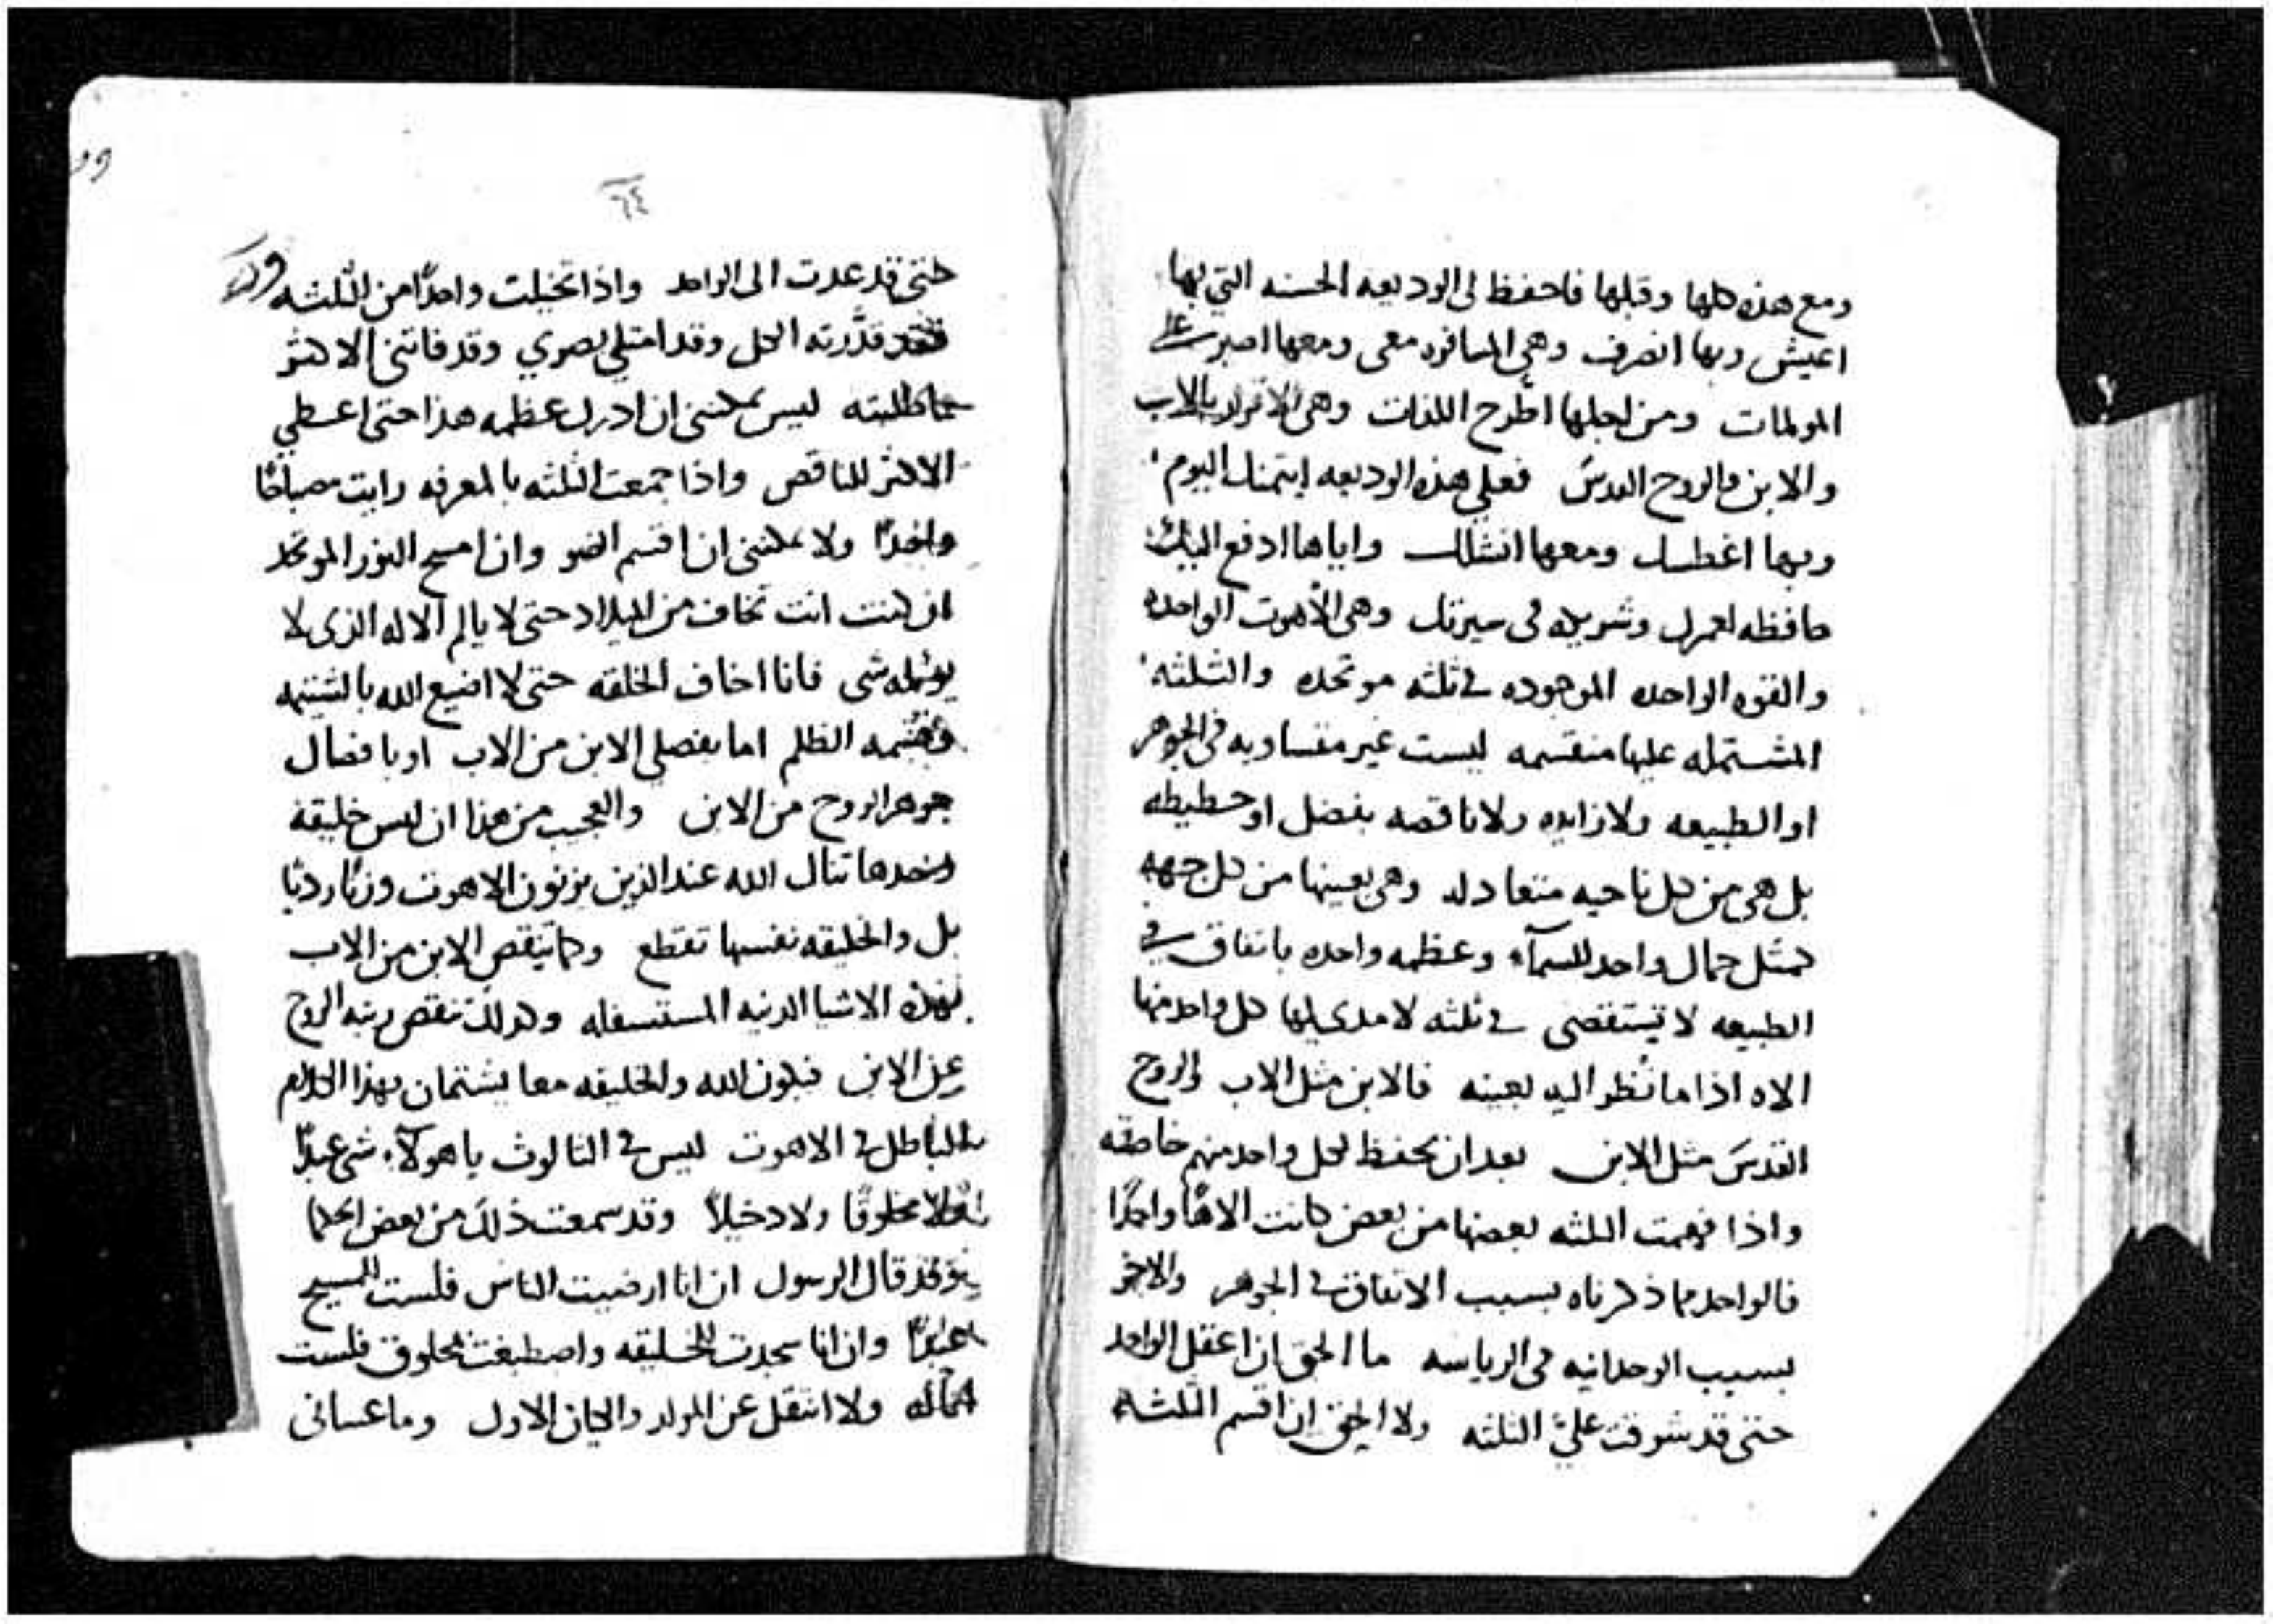 ومع هذه كلها وقبلها فاحفظ لى الوديعه الحسنه التي بها
اعيش وبها انصرف وهي المسافره معى ومعها اصبر على
المولمات ومن اجلها اطرح اللذات وهى الاقرار بالاب
والابن والروح القدس فعلي هذه الوديعه ايتمنك اليوم
وبها اغطسك ومعها انشلك واياها ادفع اليك
حافظه لعمرك وشريكه فى سيرتك وهى الاهوت الواحده
والقوه الواحده الموجوده في ثلثه موتحده والثلثه
المشتمله عليها منقسمه ليست غير متساويه فى الجوهر
او الطبيعه ولا زايده ولا ناقصه بفضل او حطيطه
بل هى من كل ناحيه متعادله وهى بعينها من كل جهه
كمثل جمال واحد للسمآء وعظمه واحده باتفاق في
الطبيعه لا يستقصى في ثلثه لا مدى لها كل واحد منها
الاه اذا ما نُظر اليه بعينه فالابن مثل الاب والروح
القدس مثل الابن بعد ان يحفظ لكل واحد منهم خاصته
واذا فهمت الثلثه بعضها من بعض كانت الاهًا واحدًا
فالواحد مما ذكرناه بسبب الاتفاق في الجوهر والاخر
بسبب الوحدانيه فى الرياسه ما الحق ان اعقل الواحد
حتى قد شرقت عليَّ الثلثه ولا الحق ان اقسم الثلثه
٦٤
حتى قد عدت الى الواحد واذا تخيلت واحدًا من الثلثه
فقد قدَّرته الكل وقد امتلى بصري وقد فاتنى الاكثر
مما طلبته ليس يمكننى ان ادرك عظمه هذا حتى اعطي
الاكثر للناقص واذا جمعت الثلثه بالمعرفه رايت مصباحًا
واحدًا ولا يمكننى ان اقسم الضو وان امسح النور الموتحد
ان كنت انت تخاف من الميلاد حتى لا يالم الاله الذى لا
يولمه شى فانا اخاف الخلقه حتى لا اضيع الله بالشتيمه
وقسمه الظلم اما بفصلي الابن من الاب او بافصال
جوهر الروح من الابن والعجب من هذا ان ليس خليقه
وحدها تنال الله عند الذين يزنون الاهوت وزنًا رديًا
بل والخليقه نفسها تقتطع وكما ينقص الابن من الاب
بهذه الاشيا الدنيه المستسفله وكذلك تنقص رتبه الروح
عن الابن فيكون الله والخليقه معا يشتمان بهذا الكلام
الباطل في الاهوت ليس في الثالوث يا هولآء شى عبدًا
ولا مخلوقًا ولا دخيلاً وقد سمعت ذلك من بعض الحكما
وقد قال الرسول ان انا ارضيت الناس فلست للمسيح
عبدًا وان انا سجدت للخليقه واصطبغت بمخلوق فلست
ولا انتقل عن المولد والكيان الاول وما عسانى